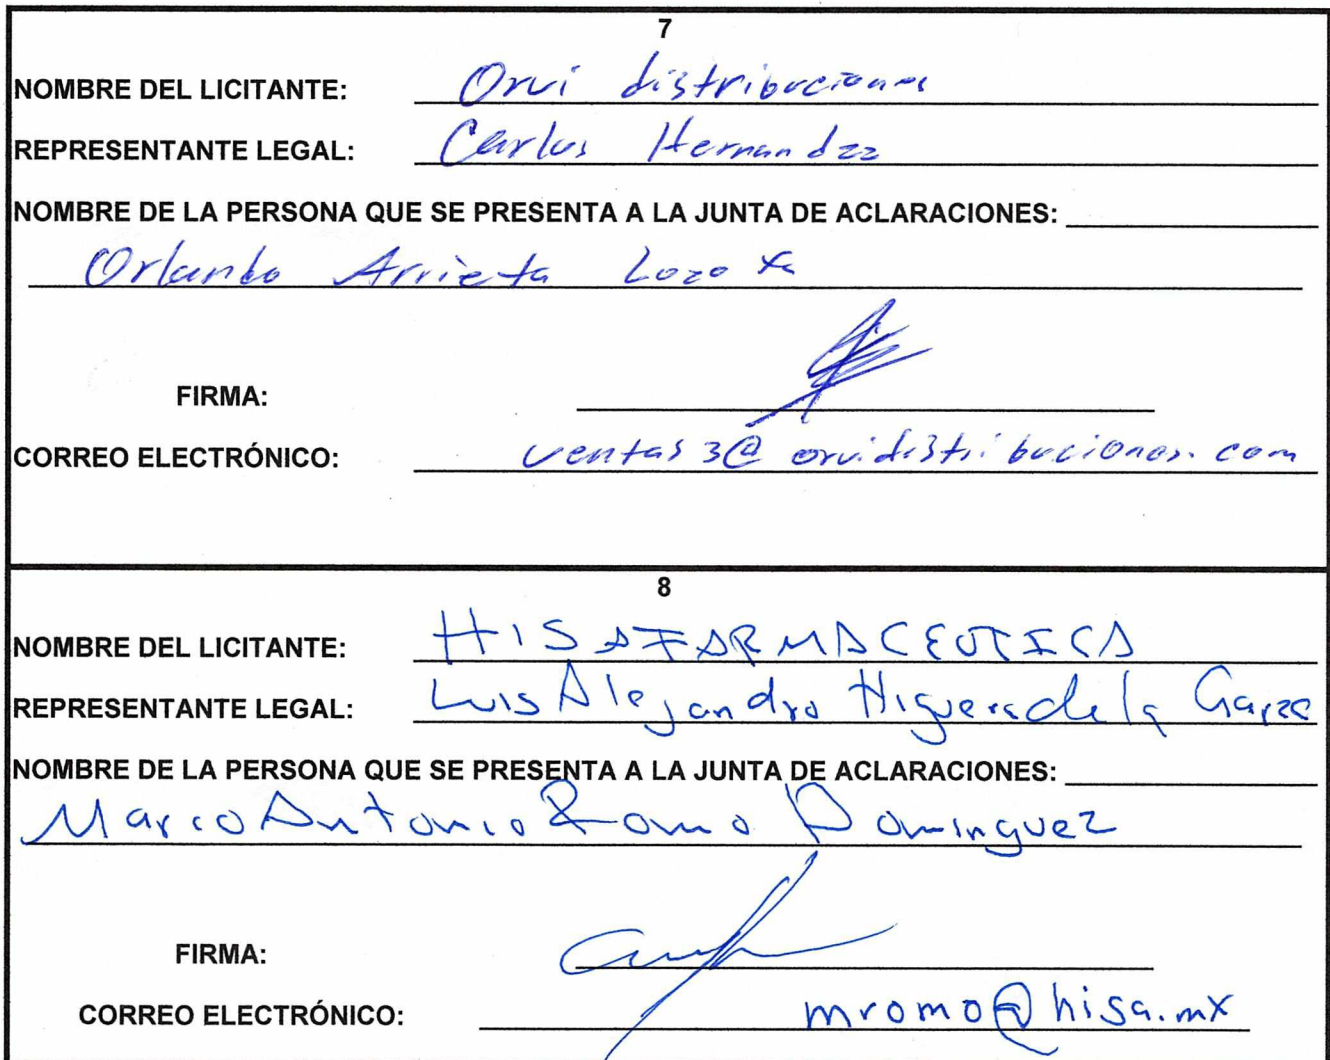 7
NOMBRE DEL LICITANTE: Orvi distribuciones
REPRESENTANTE LEGAL: Carlos Hernandez
NOMBRE DE LA PERSONA QUE SE PRESENTA A LA JUNTA DE ACLARACIONES:
Orlando Arrieta
FIRMA:
CORREO ELECTRÓNICO: ventas3@orvidistribuciones.com
8
NOMBRE DEL LICITANTE: HISA FARMACEUTICA
REPRESENTANTE LEGAL: Luis Alejandro Higuera de la Garza
NOMBRE DE LA PERSONA QUE SE PRESENTA A LA JUNTA DE ACLARACIONES:
Marco Antonio Romo Dominguez
FIRMA:
CORREO ELECTRÓNICO: mromo@hisa.mx